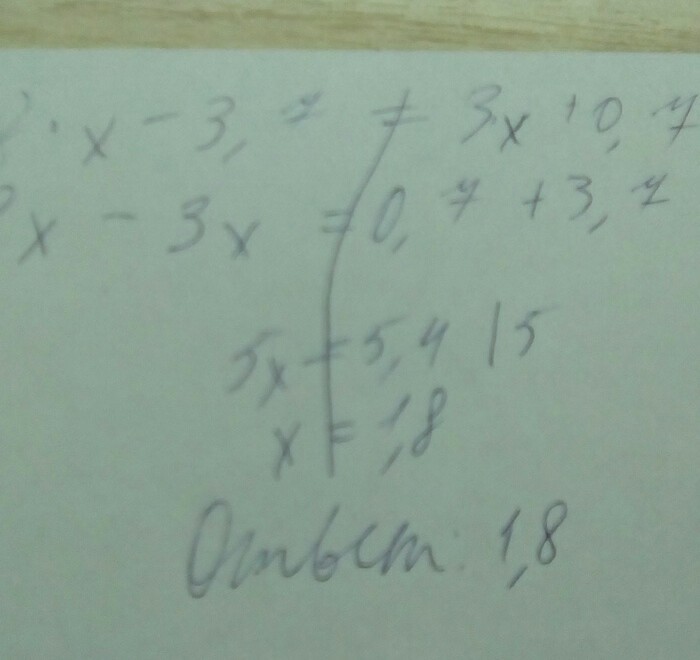 · x − 3, 7 = 3x + 0, 7
x − 3x = 0, 7 + 3, 7
5x = 5,4 | 5
x = 1,8
Ответ: 1,8